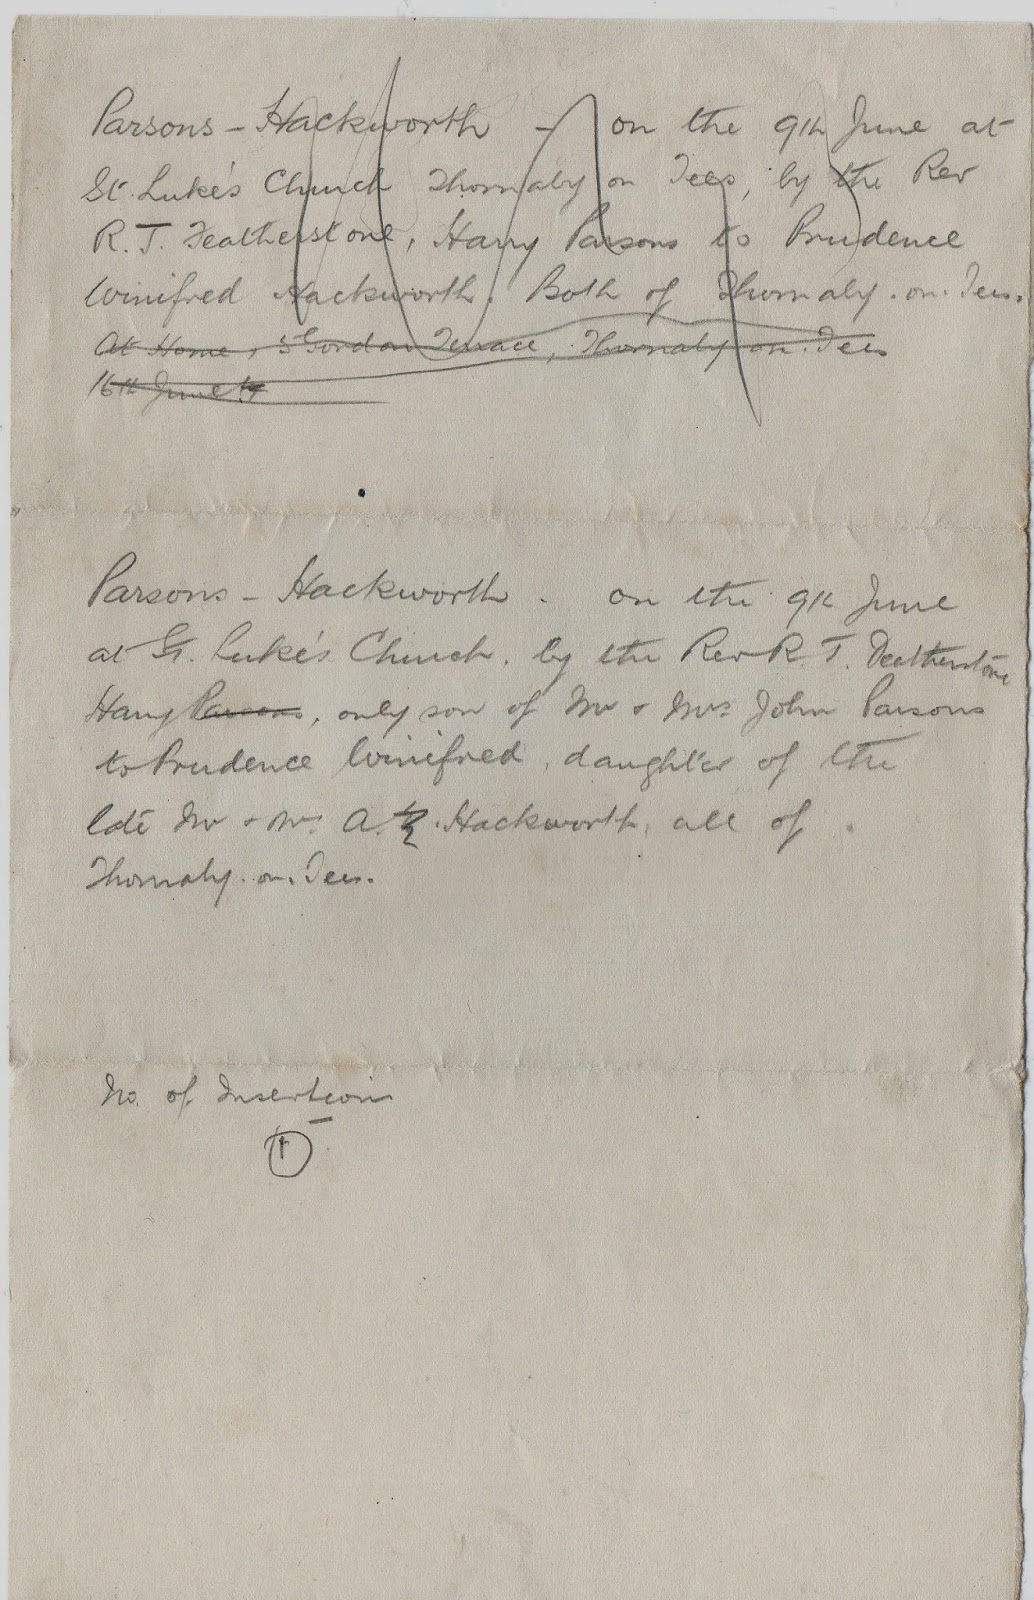 Parsons – Hackworth – on the 9th June at
St. Luke's Church Thornaby on Tees, by the Rev
R. T. Featherstone, Harry Parsons to Prudence
Winifred Hackworth. Both of Thornaby. on. Tees.
At Home, 5 Gordon Terrace, Thornaby on. Tees
16th June
Parsons – Hackworth. on the 9th June
at St. Luke's Church. by the Rev R. T. Featherstone
Harry Parsons, only son of Mr & Mrs John Parsons
to Prudence Winifred, daughter of the
late Mr & Mrs A. Hackworth, all of
Thornaby. on. Tees.
No. of Insertions
1